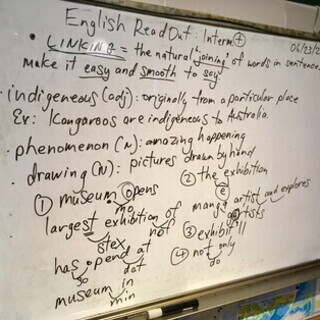 English Read Out: Interm +
06/23/2
• LINKING = the natural "joining" of words in sentence
make it easy and smooth to say
• indigeneous (adj): originally from a particular place
Ex: Kangaroos are indigeneous to Australia.
• phenomenon (N): amazing happening
• drawing (N): pictures drawn by hand
① museum opens
mo
largest exhibition of
stex
nof
has opend at
so
dat
museum in
min
② the exhibition
manga artist and explores
artists
③ exhibit'll
④ not only
do